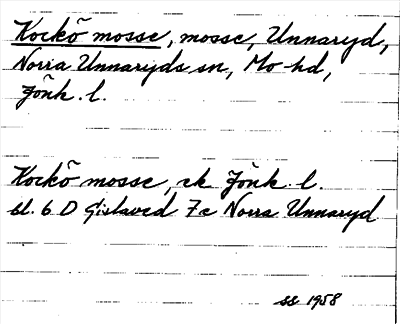 Kockö mosse, mosse, Unnaryd,
Norra Unnaryds sn, Mo hd,
Jönk. l.
Kockö mosse, ek Jönk. l.
bl. 6 D Gislaved 7c Norra Unnaryd
ss 1958